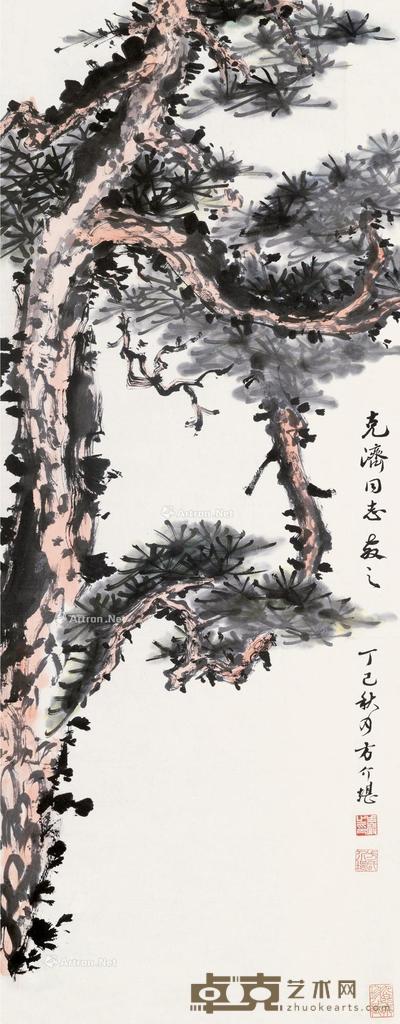 克濟同志教之
丁巳秋月方介堪
Artron.Net
Artron.Net
Artron.Net
卓克艺术网
zhuokearts.com